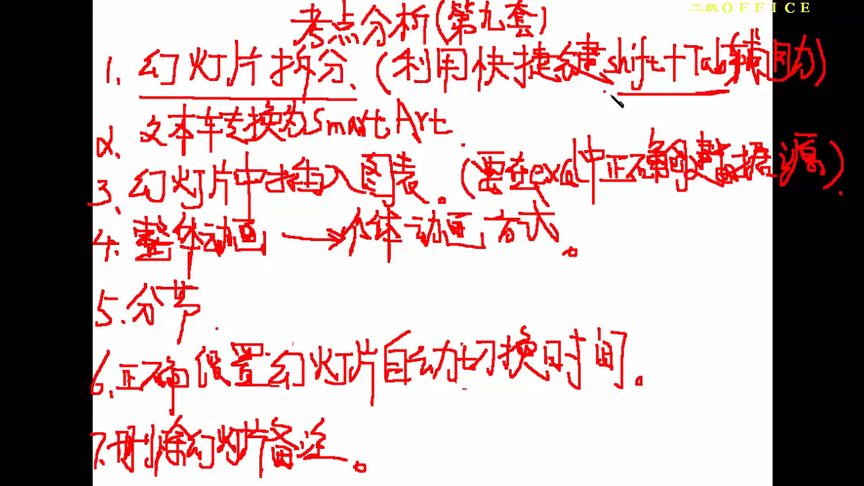 二级OFFICE
考点分析(第九套)
1. 幻灯片拆分、(利用快捷键shift+Tab辅助)
2、文本转换为SmartArt
3、幻灯片中插入图表。(要在excel中正确创建数据源)
4.整体动画→个体动画方式。
5.分节
6.正确设置幻灯片自动切换时间。
7.删除幻灯片备注。